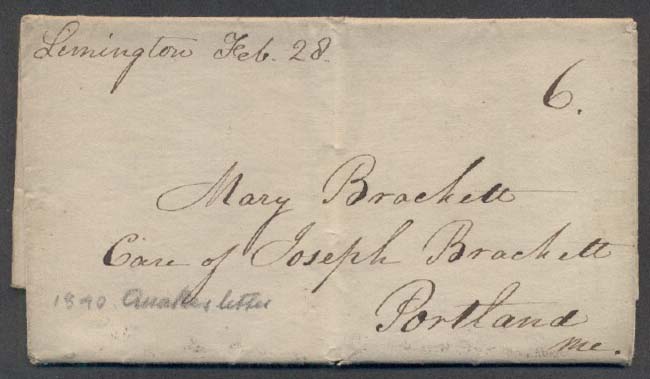 Lemington Feb. 28.
6.
Mary Brackett
Care of Joseph Brackett
Portland
Me.
1840. Quaker letter